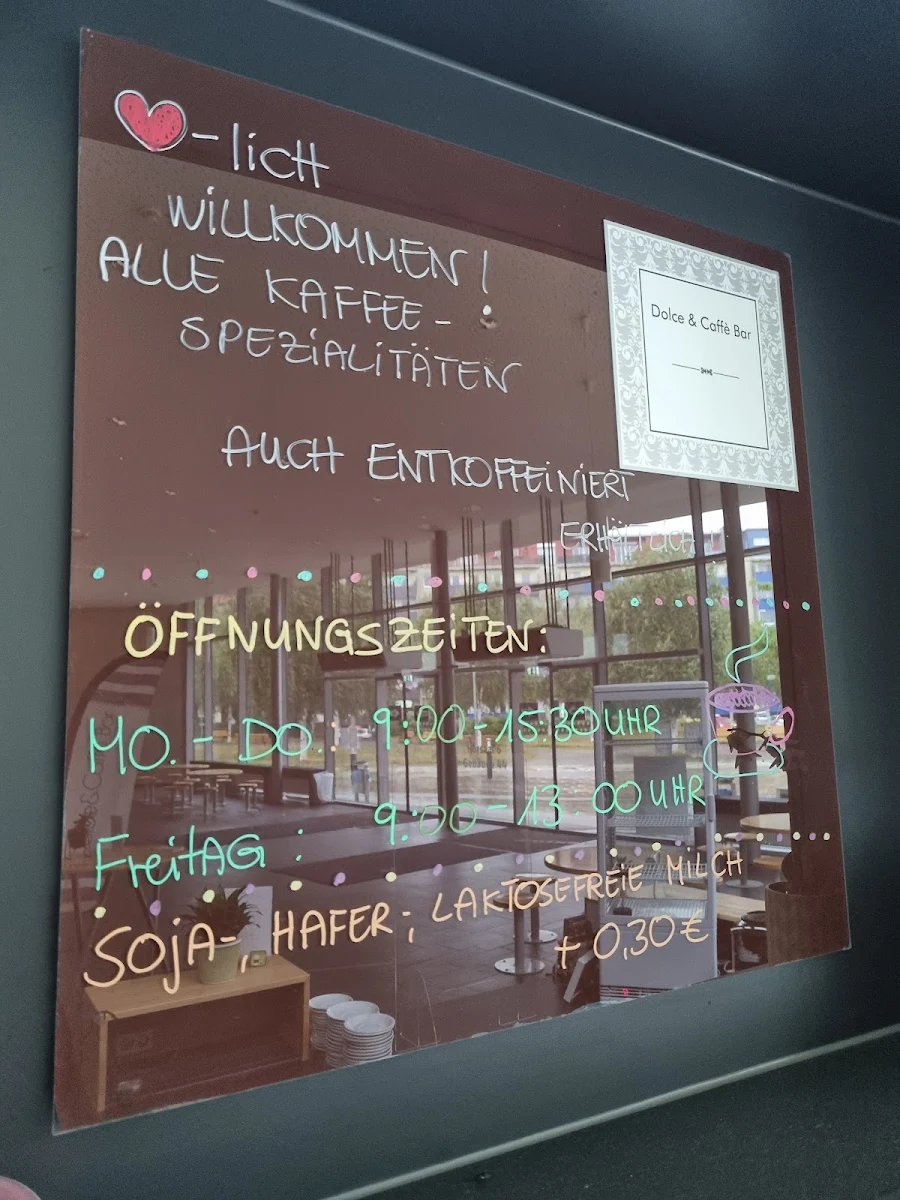 ❤-lich
WILLKOMMEN!
ALLE KAFFEE-
SPEZIALITÄTEN
Dolce & Caffè Bar
AUCH ENTKOFFEINIERT
ERHÄLTLICH
ÖFFNUNGSZEITEN:
MO.- DO.: 9:00-15:30 UHR
FreitAG: 9:00-13.00 UHR
SOJA-, HAFER; LAKTOSEFREIE MILCH
+ 0,30 €